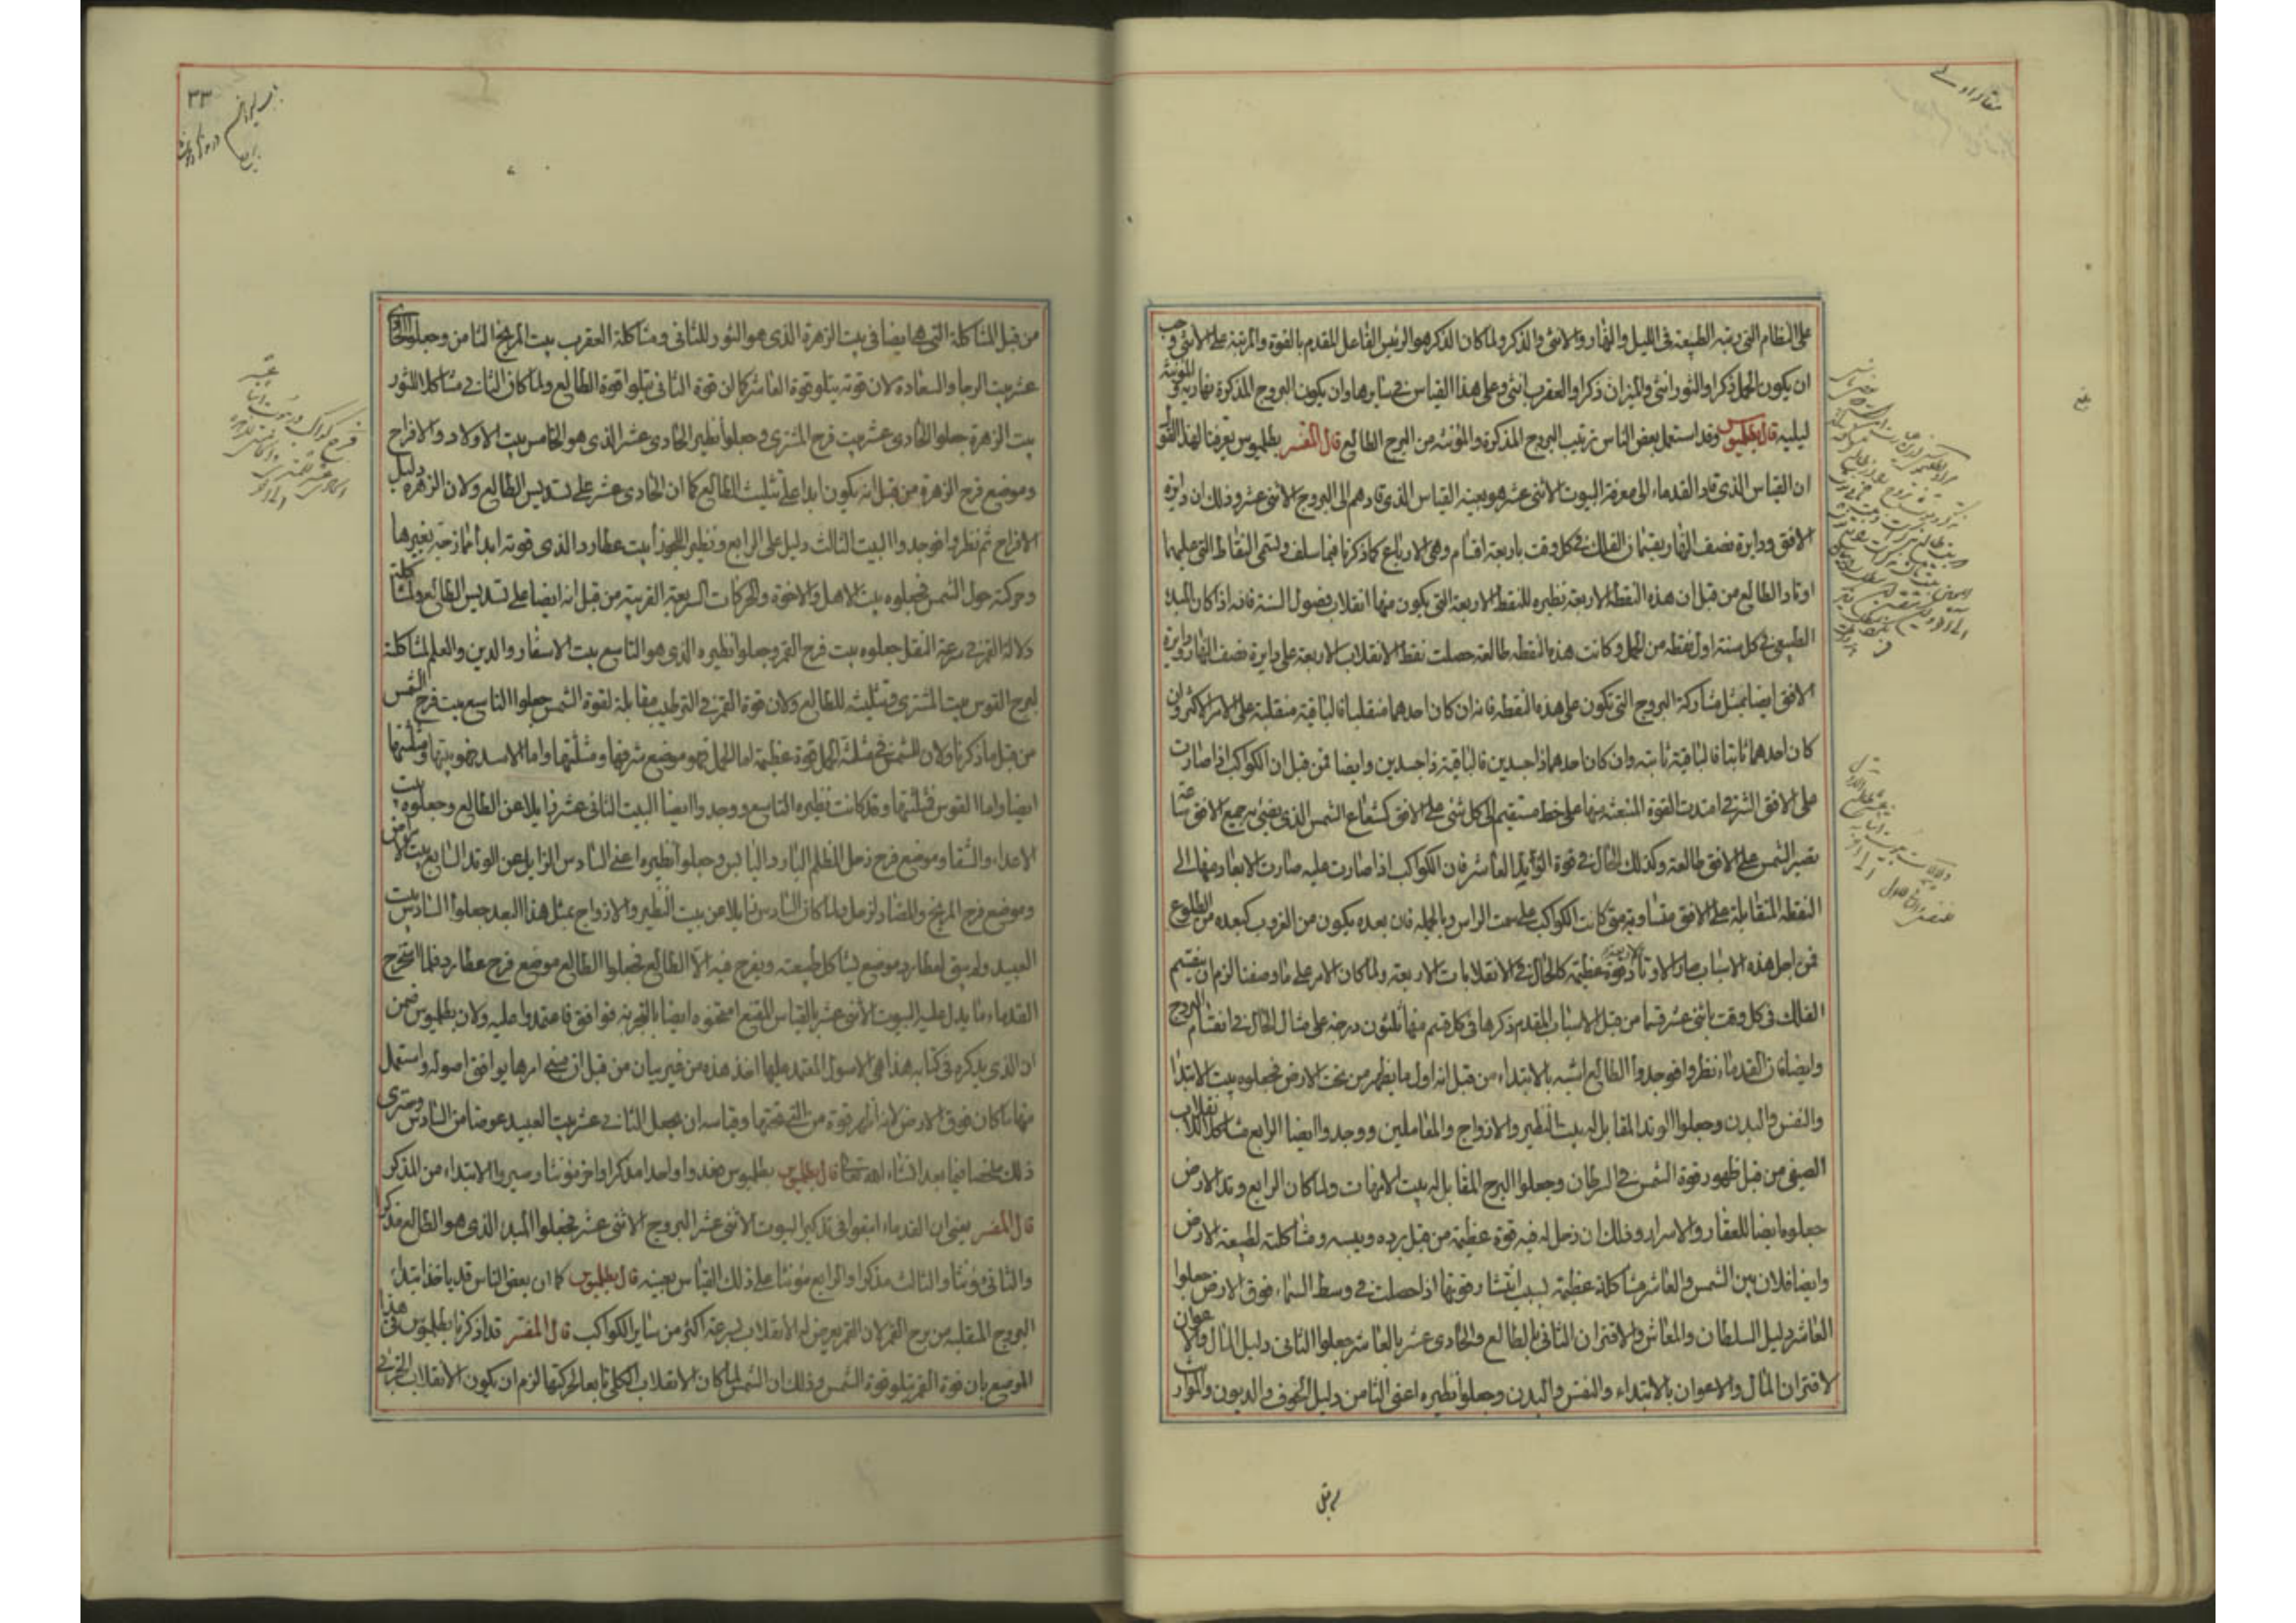 على النظام التى رتبته الطبيعة فى الليل والنهار والانثى والذكر ولما كان الذكر هو الرئيس الفاعل المقدم بالقوة والمرتبة على الانثى وجب
ان يكون الحمل ذكرا والثور انثى والميزان ذكرا والعقرب انثى وعلى هذا القياس فى سايرها وان يكون البروج المذكرة نهارية والمؤنثة
ليلية قال بطلميوس وقد استعمل بعض الناس ترتيب البروج المذكرة والمؤنثة من البرج الطالع قال المفسر بطلميوس يعرفنا لهذا القول
ان القياس الذى قاد القدماء الى معرفة البيوت الاثنى عشر هو بعينه القياس الذى قادهم الى البروج الاثنى عشر وذلك ان دايرة
الافق ودايرة نصف النهار يقسمان الفلك فى كل وقت باربعة اقسام وهى الارباع كما ذكرنا فيما سلف وتسمى النقاط التى عليهما
اوتاد الطالع من قبل ان هذه النقطه الاربعة نظيره للنقط الاربعة التى يكون منها انقلاب فصول السنة فانه اذا كان المبدء
الطبيعى فى كل سنة اول نقطه من الحمل وكانت هذه النقطه طالعة حصلت نقط الانقلاب الاربعة على دايرة نصف النهار ودايرة
الافق ايضا بمثل مشاركة البروج التى تكون على هذه النقطه فانه ان كان احدهما منقلبا فالباقية منقلبة على الامر الاكثر وان
كان احدهما ثابتا فالباقية ثابته وان كان احدهما ذا جسدين فالباقية ذا جسدين وايضا فمن قبل ان الكواكب اذا صارت
على الافق الشرقى امتدت القوة المنبعثه منها على خط مستقيم الى كل شئ على الافق كشعاع الشمس الذى يضئ به جميع الافق ساعة
تصير الشمس على الافق طالعة وكذلك الحال فى قوة العاشر فان الكواكب اذا صارت عليه صارت الابعاد منها الى
النقطه المتقابلة على الافق متساوية متى كانت الكواكب على سمت الراس وبالجمله فان بعده يكون من الغروب كبعده من الطلوع
فمن اجل هذه الاسباب صار للاوتاد الاربعة قوة عظيمة كالحال فى الانقلابات الاربعة ولما كان الامر على ما وصفنا لزم ان ينقسم
الفلك فى كل وقت باثنى عشر قسما من قبل الاسباب المقدم ذكرها فى كل قسم منها ثلثون درجة على مثال الحال فى انقسام البروج
وايضا فان القدماء نظروا فوجدوا الطالع اشبه بالابتداء من قبل انه اول ما يظهر من تحت الارض فجعلوه بيت الابتدا
والنفس والبدن وجعلوا الوتد المقابل له بيت النظير والازواج والمقاملين ووجدوا ايضا الرابع مشاكلا للانقلاب
الصيفى من قبل ظهور قوة الشمس فى السرطان وجعلوا البرج المقابل له بيت الامهات ولما كان الرابع وتد الارض
جعلوه ايضا للعقار والاسرار وذلك ان زحل له فيه قوة عظيمة من قبل برده ويبسه ومشاكلته لطبيعة الارض
وايضا فلان بين الشمس والعاشر مشاكلة عظيمة لسبب انتشار قوتها اذا حصلت فى وسط السماء فوق الارض جعلوا
العاشر دليل السلطان والمعاش ولاقتران الثانى بالطالع والحادى عشر بالعاشر جعلوا الثانى دليل المال والاعوان
لاقتران المال والاعوان بالابتداء والنفس والبدن وجعلوا نظيره اعنى الثامن دليل الخوف والديون والمواريث
من قبل
٣٣
من قبل المشاكلة التى ها ايضا فى بيت الزهرة الذى هو الثور للثانى ومشاكلة العقرب بيت المريخ الثامن وجعلوا الحادى
عشر بيت الرجا والسعادة لان قوته يتلو قوة العاشر كما ان قوة الثانى يتلوا قوة الطالع ولما كان الثانى مشاكلا للثور
بيت الزهرة جعلوا الحادى عشر بيت فرح المشترى وجعلوا نظير الحادى عشر الذى هو الخامس بيت الاولاد والافراح
وموضع فرح الزهرة من قبل انه يكون ابدا على تثليث الطالع كما ان الحادى عشر على تسديس الطالع ولان الزهره دليل
الافراح ثم نظروا فوجدوا البيت الثالث دليل على الرابع ونظير الجوزا بيت عطارد الذى قوته ابدا ممازجة بغيرها
وحركته حول الشمس فجعلوه بيت الاهل والاخوة والحركات السريعة القريبة من قبل انه ايضا على تسديس الطالع ولمشاكلة
دلالة القمر فى سرعة النقل جعلوه بيت فرح القمر وجعلوا نظيره الذى هو التاسع بيت الاسفار والدين والعلم لمشاكلة
لبرج القوس بيت المشترى وتثليثه للطالع ولان قوة القمر فى الترطيب مقابلة لقوة الشمس جعلوا التاسع بيت فرح الشمس
من قبل ما ذكرنا ولان للشمس فى مثلثة الحمل قوة عظيمة اما الحمل فهو موضع شرفها ومثلثها واما الاسد فهو بيتها ومثلثها
ايضا واما القوس فمثلثها وقد كانت نظيره التاسع ووجدوا ايضا البيت الثانى عشر زايلا عن الطالع وجعلوه بيت
الاعداء والشقا وموضع فرح زحل المظلم البارد اليابس وجعلوا نظيره اعنى السادس الزايل عن الوتد السابع بيت الامراض
وموضع فرح المريخ والمضاد لزحل ولما كان السادس زايلا عن بيت النظير والازواج بمثل هذا البعد جعلوا السادس بيت
العبيد ولم يبق لعطارد موضع يشاكل طبيعته ويفرح فيه الا الطالع فجعلوا الطالع موضع فرح عطارد فلما استخرج
القدماء ما يدل عليه البيوت الاثنى عشر بالقياس المقنع امتحنوه ايضا بالتجربة فوافق فاعتمدوا عليه ولان بطلميوس ضمن
ان الذى يذكره فى كتابه هذا هى الاصول المعتمد عليها اخذ هذه من غير بيان من قبل ان امرها يوافق اصوله واستعمل
منها ما كان فوق الارض لانه اظهر قوة من التى تحتها وقياسه ان يجعل الثانى عشر بيت العبيد عوضا من السادس وسترى
ذلك ملخصا فيما بعد انشاء الله تعالى قال بطلميوس بطلميوس فعدوا واحدا مذكرا واخر مؤنثا وصيروا الابتداء من المذكر
قال المفسر يعنى ان القدماء اتبعوا فى تذكير البيوت الاثنى عشر البروج الاثنى عشر فجعلوا المبدء الذى هو الطالع مذكرا
والثانى مؤنثا والثالث مذكرا والرابع مؤنثا على ذلك القياس بعينه قال بطلميوس كما ان بعض الناس قد ياخذ ابتداء
البروج المنقلبه من برج القمر لان القمر يعرض له الانقلاب بسرعة اكثر من ساير الكواكب قال المفسر قد اذكرنا بطلميوس فى هذا
الموضع بان قوة القمر يتلو قوة الشمس وذلك ان الشمس لما كان الانقلاب الكلى تابعا لحركتها لزم ان يكون الانقلاب الجزئى